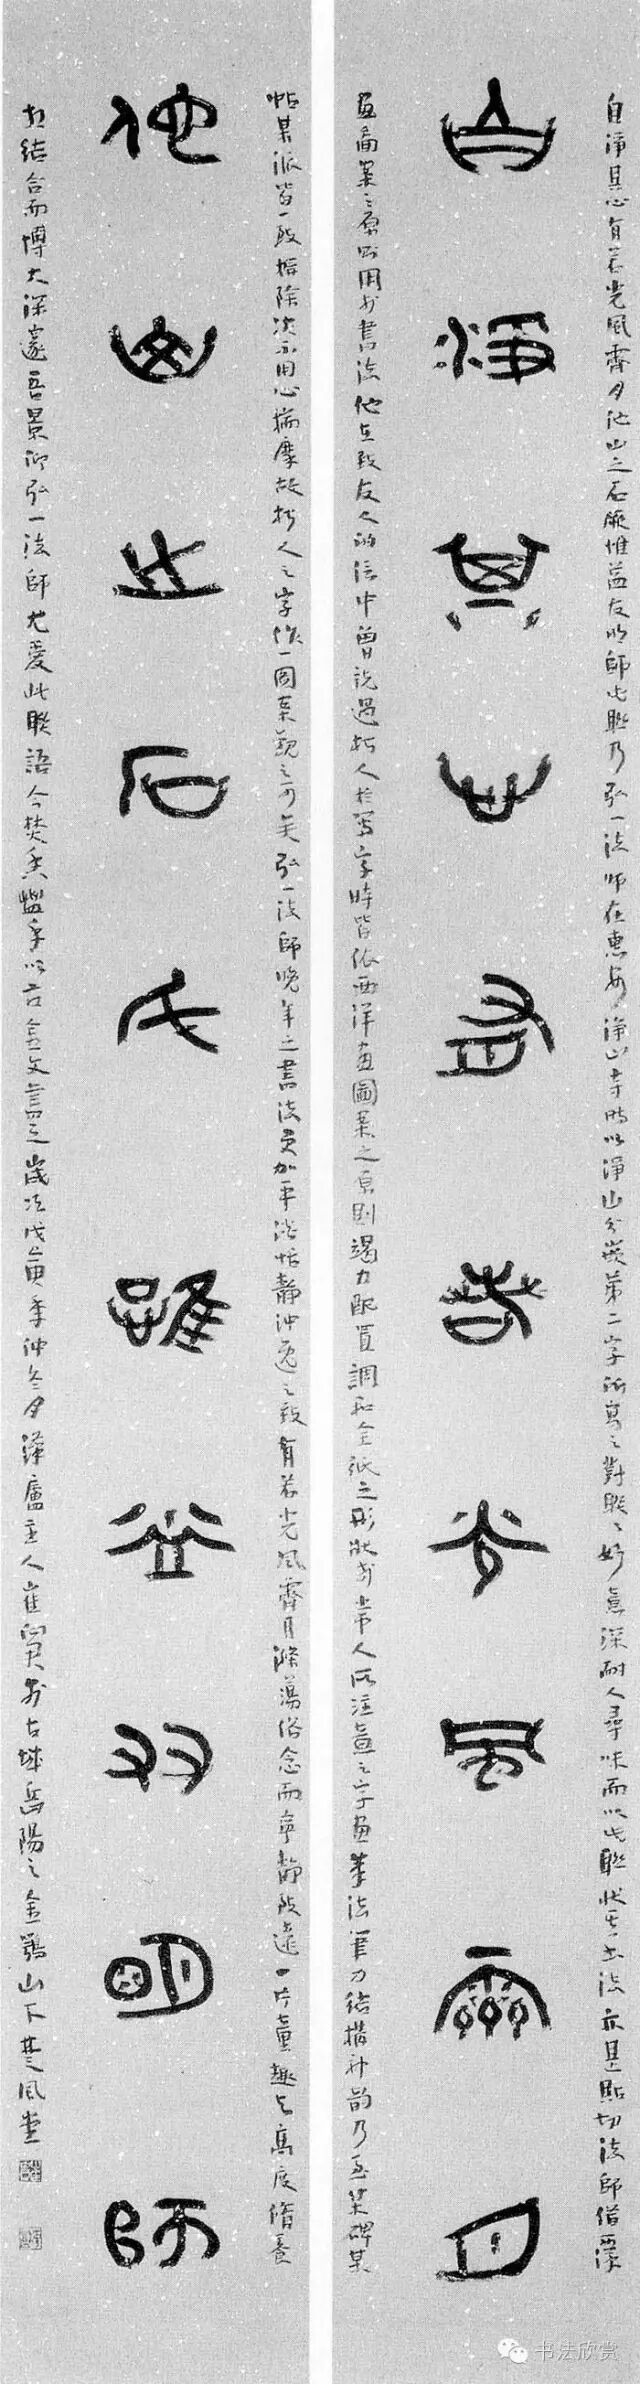 自淨其心有若光風霽月他山之石厥惟益友明師此聯乃弘一法師在惠安淨山寺時以淨山分嵌第二字所寫之對聯聯好意深耐人尋味而以此聯狀其書法亦甚貼切法師借西洋
自淨其心有若光風霽月
畫圖案之原則用於書法他在致友人的信中曾說過朽人於寫字時皆依西洋畫圖案之原則竭力配置調和全紙之形狀於常人所注意之字畫筆法筆力結構神韻乃至某碑某
帖某派皆一致摒除決不用心揣摩故朽人之字作一圖案觀之可矣弘一法師晚年之書法更加平淡恬靜沖逸之致有若光風霽月滌蕩俗念而寧靜致遠一片童趣與高度脩養
他山之石氏唯益友明師
相結合而博大深邃吾景仰弘一法師尤愛此聯語今焚香盥手以古金文書之歲次戊寅季仲冬夕漾廬主人崔向君於古城岳陽之金鶚山下楚風堂
书法欣赏